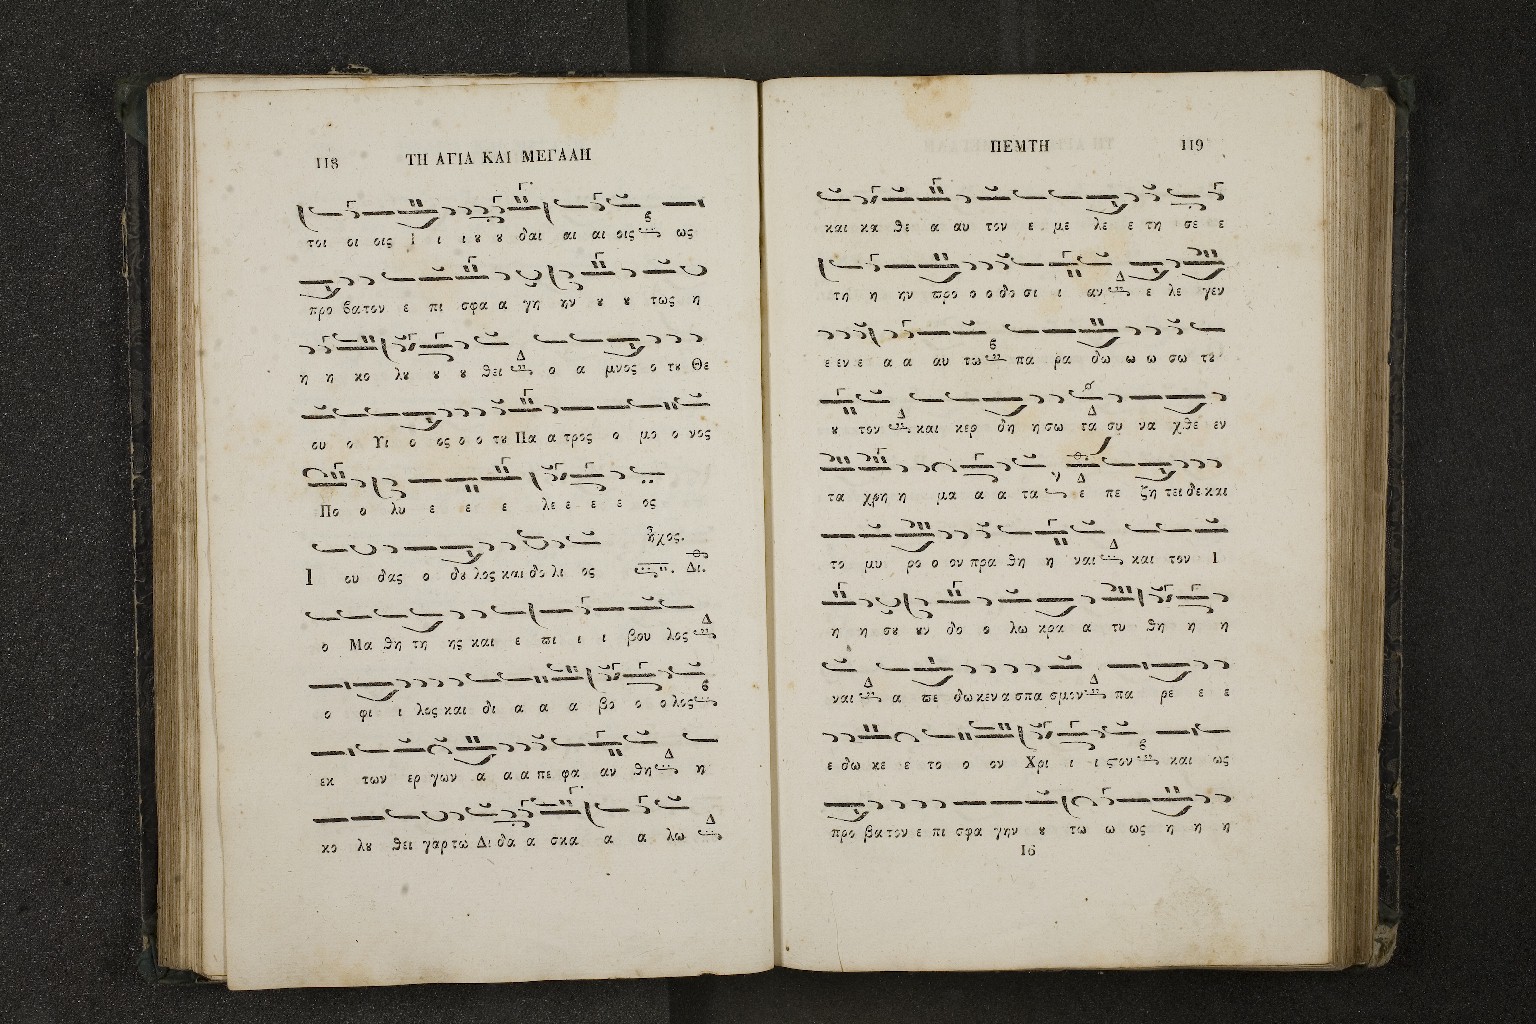 118 ΤΗ ΑΓΙΑ ΚΑΙ ΜΕΓΑΛΗ
τοι οι οις Ι ι ι ȣ ȣ δαι αι αι οις ως
προ βα τον ε πι σφα α γη ην ȣ ȣ τως η
η η κο λȣ ȣ ȣ θει ο α μνος ο τȣ Θε
ου ο Υι ο ος ο ο τȣ Πα α τρος ο μο ο νος
Πο ο λυ ε ε ε λε ε ε ε ος
Ι ου δας ο δȣ λος και δο λι ος ἦχος. Δι.
ο Μα θη τη ης και ε πι ι ι βου λος
ο φι ι λος και δι α α α βο ο ο λος
εκ των ερ γων α α α πε φα αν θη η
κο λȣ θει γαρ τω Δι δα α σκα α α λω
ΠΕΜΤΗ 119
και κα θε α αυ τον ε με λε ε τη σε ε
τη η ην προ ο ο δο σι ι αν ε λε γεν
ε εν ε α α αυ τω πα ρα δω ω ω σω τȣ
ȣ τον και κερ δη η σω τα συ να χθε εν
τα χρη η μα α α τα ε πε ζη τει δε και
το μυ ρο ο ον πρα θη η ναι και τον Ι
η η σȣ ȣν δο ο λω κρα α τυ θη η η
ναι α πε δω κεν α σπα σμον πα ρε ε ε
ε δω κε ε το ο ον Χρι ι ι ϛον και ως
προ βα τον ε πι σφα γην ȣ τω ω ως η η η
16